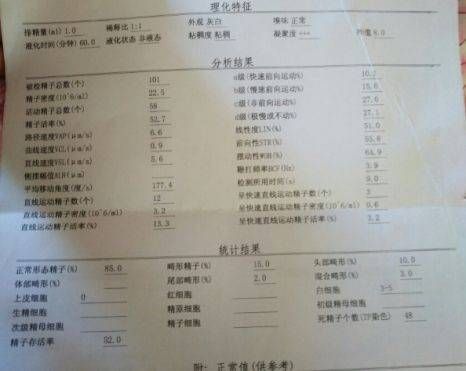 理化特征
排精量(ml) 1.0 稀释比 1:1 外观 灰白 嗅味 正常
液化时间(分钟) 60.0 液化状态 非液态 粘稠度 粘稠 凝聚度 +++ 8.0
分析结果
被检精子总数(个) 101 a级(快速前向运动%)
精子密度(10^6/ml) 22.5 b级(慢速前向运动%) 15.6
活动精子总数(个) 58 c级(非前向运动%) 27.6
精子活率(%) 52.7 d级(极慢或不动%) 27.1
路径速度VAP(μm/s) 6.6 线性度LIN(%) 51.0
曲线速度VCL(μm/s) 0.9 前向性STR(%)
直线速度VSL(μm/s) 5.6 摆动性WOB(%) 64.9
侧摆幅值ALH(μm) 鞭打频率BCF(Hz) 3.9
平均移动角度(度/s) 177.4 检测所用时间(s) 9.0
直线运动精子数(个) 12 呈快速直线运动精子数(个) 3
直线运动精子密度(10^6/ml) 3.2 呈快速直线运动精子密度(10^6/ml) 0.6
直线运动精子活率(%) 13.3 呈快速直线运动精子活率(%) 3.2
统计结果
正常形态精子(%) 85.0 畸形精子(%) 15.0 头部畸形(%) 10.0
体部畸形(%) 尾部畸形(%) 2.0 混合畸形(%) 3.0
上皮细胞 0 红细胞 白细胞 3-5
生精细胞 精原细胞 初级精母细胞
次级精母细胞 精子细胞 死精子个数 48
精子存活率 52.0
附: 正常值(供参考)